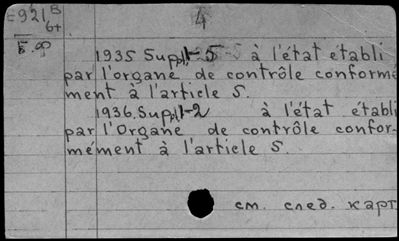 =921 B
6+
4
1935 Suppl 1-5 à l'état établi
par l'organe de contrôle conformé
ment à l'article 5.
1936. Suppl 1-2 à l'état établi
par l'Organe de contrôle confor-
mément à l'article 5.
см. след. карт